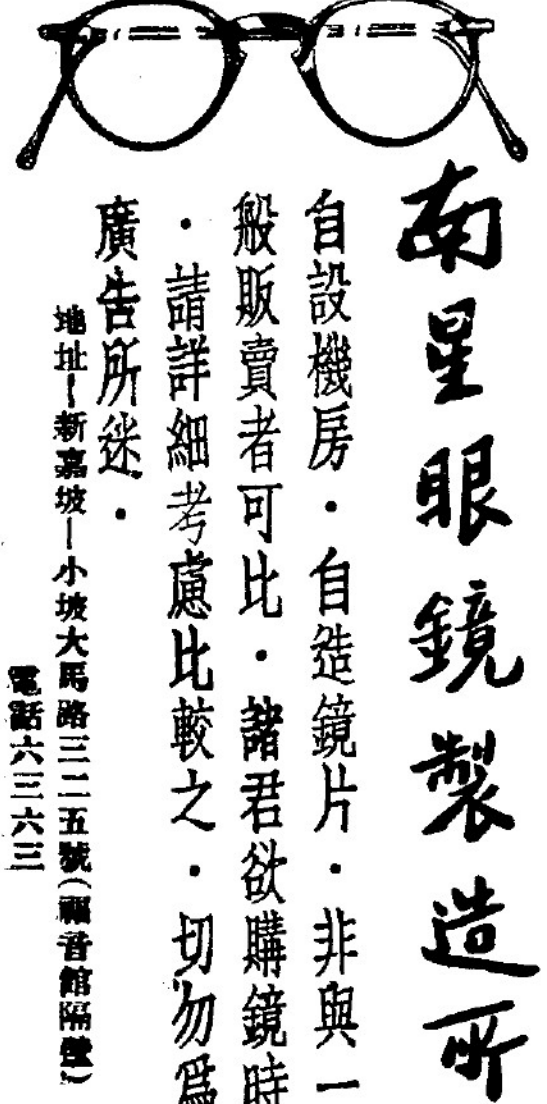 南星眼鏡製造所
自設機房・自造鏡片・非與一
般販賣者可比・諸君欲購鏡時
・請詳細考慮比較之・切勿爲
廣告所迷・
地址—新嘉坡—小坡大馬路三二五號(福音館隔壁)
電話六三六三